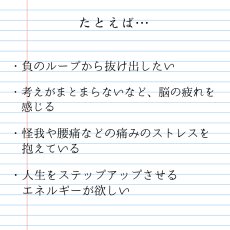 たとえば…
・負のループから抜け出したい
・考えがまとまらないなど、脳の疲れを
感じる
・怪我や腰痛などの痛みのストレスを
抱えている
・人生をステップアップさせる
エネルギーが欲しい